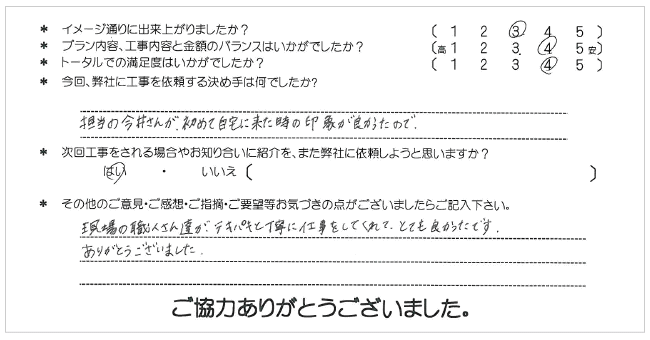 * イメージ通りに出来上がりましたか? ( 1 2 3 4 5 )
* プラン内容、工事内容と金額のバランスはいかがでしたか? (高 1 2 3 4 5 安)
* トータルでの満足度はいかがでしたか? ( 1 2 3 4 5 )
* 今回、弊社に工事を依頼する決め手は何でしたか?
担当の今井さんが、初めて自宅に来た時の印象が良かったので.
* 次回工事をされる場合やお知り合いに紹介を、また弊社に依頼しようと思いますか?
はい ・ いいえ ( )
* その他のご意見・ご感想・ご指摘・ご要望等お気づきの点がございましたらご記入下さい。
現場の職人さん達が、テキパキと丁寧に仕事をしてくれて、とても良かったです.
ありがとうございました.
ご協力ありがとうございました。